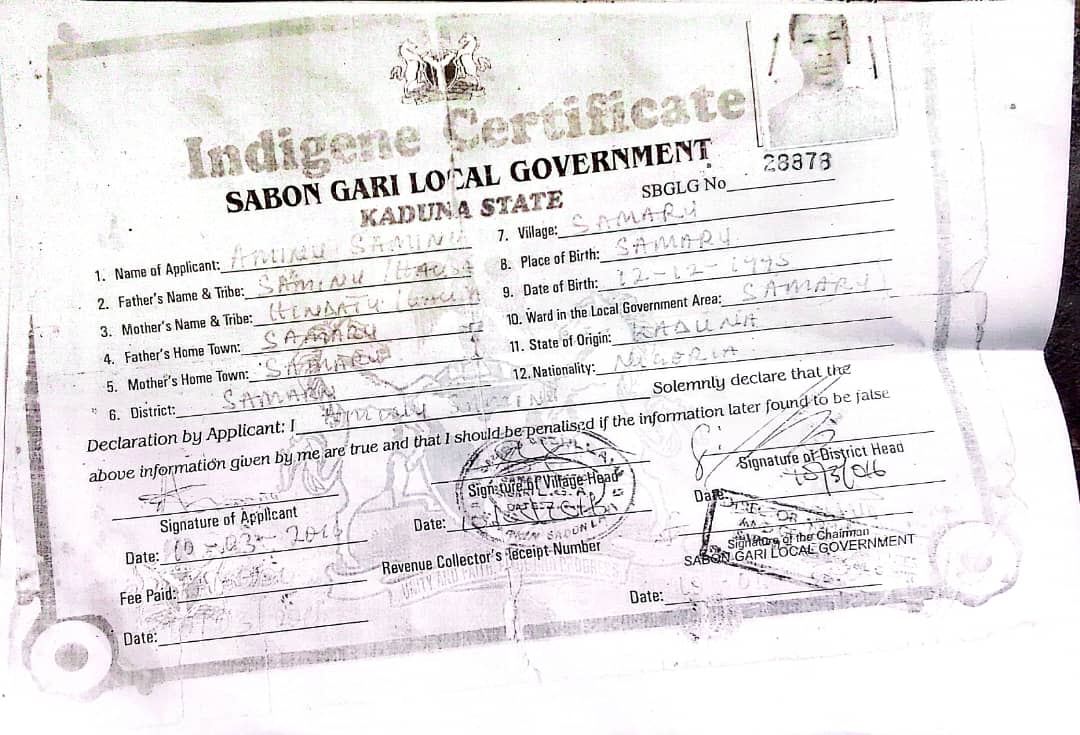 Indigene Certificate
SABON GARI LOCAL GOVERNMENT
KADUNA STATE
SBGLG No 28878
1. Name of Applicant: AMINU SAMINU
2. Father's Name & Tribe: SAMINU / HAUSA
3. Mother's Name & Tribe: HINDATU /
4. Father's Home Town: SAMARU
5. Mother's Home Town: SAMARU
6. District: SAMARU
7. Village: SAMARU
8. Place of Birth: SAMARU
9. Date of Birth: 12-12-1995
10. Ward in the Local Government Area: SAMARU
11. State of Origin: KADUNA
12. Nationality: NIGERIA
Declaration by Applicant: I Solemnly declare that the
above information given by me are true and that I should be penalised if the information later found to be false
Signature of Applicant
Date: 10-03-2016
Fee Paid:
Date:
Signature of Village Head
Date:
Revenue Collector's Receipt Number
UNITY AND FAITH
Signature of District Head
Date:
Signature of the Chairman
SABON GARI LOCAL GOVERNMENT
Date: